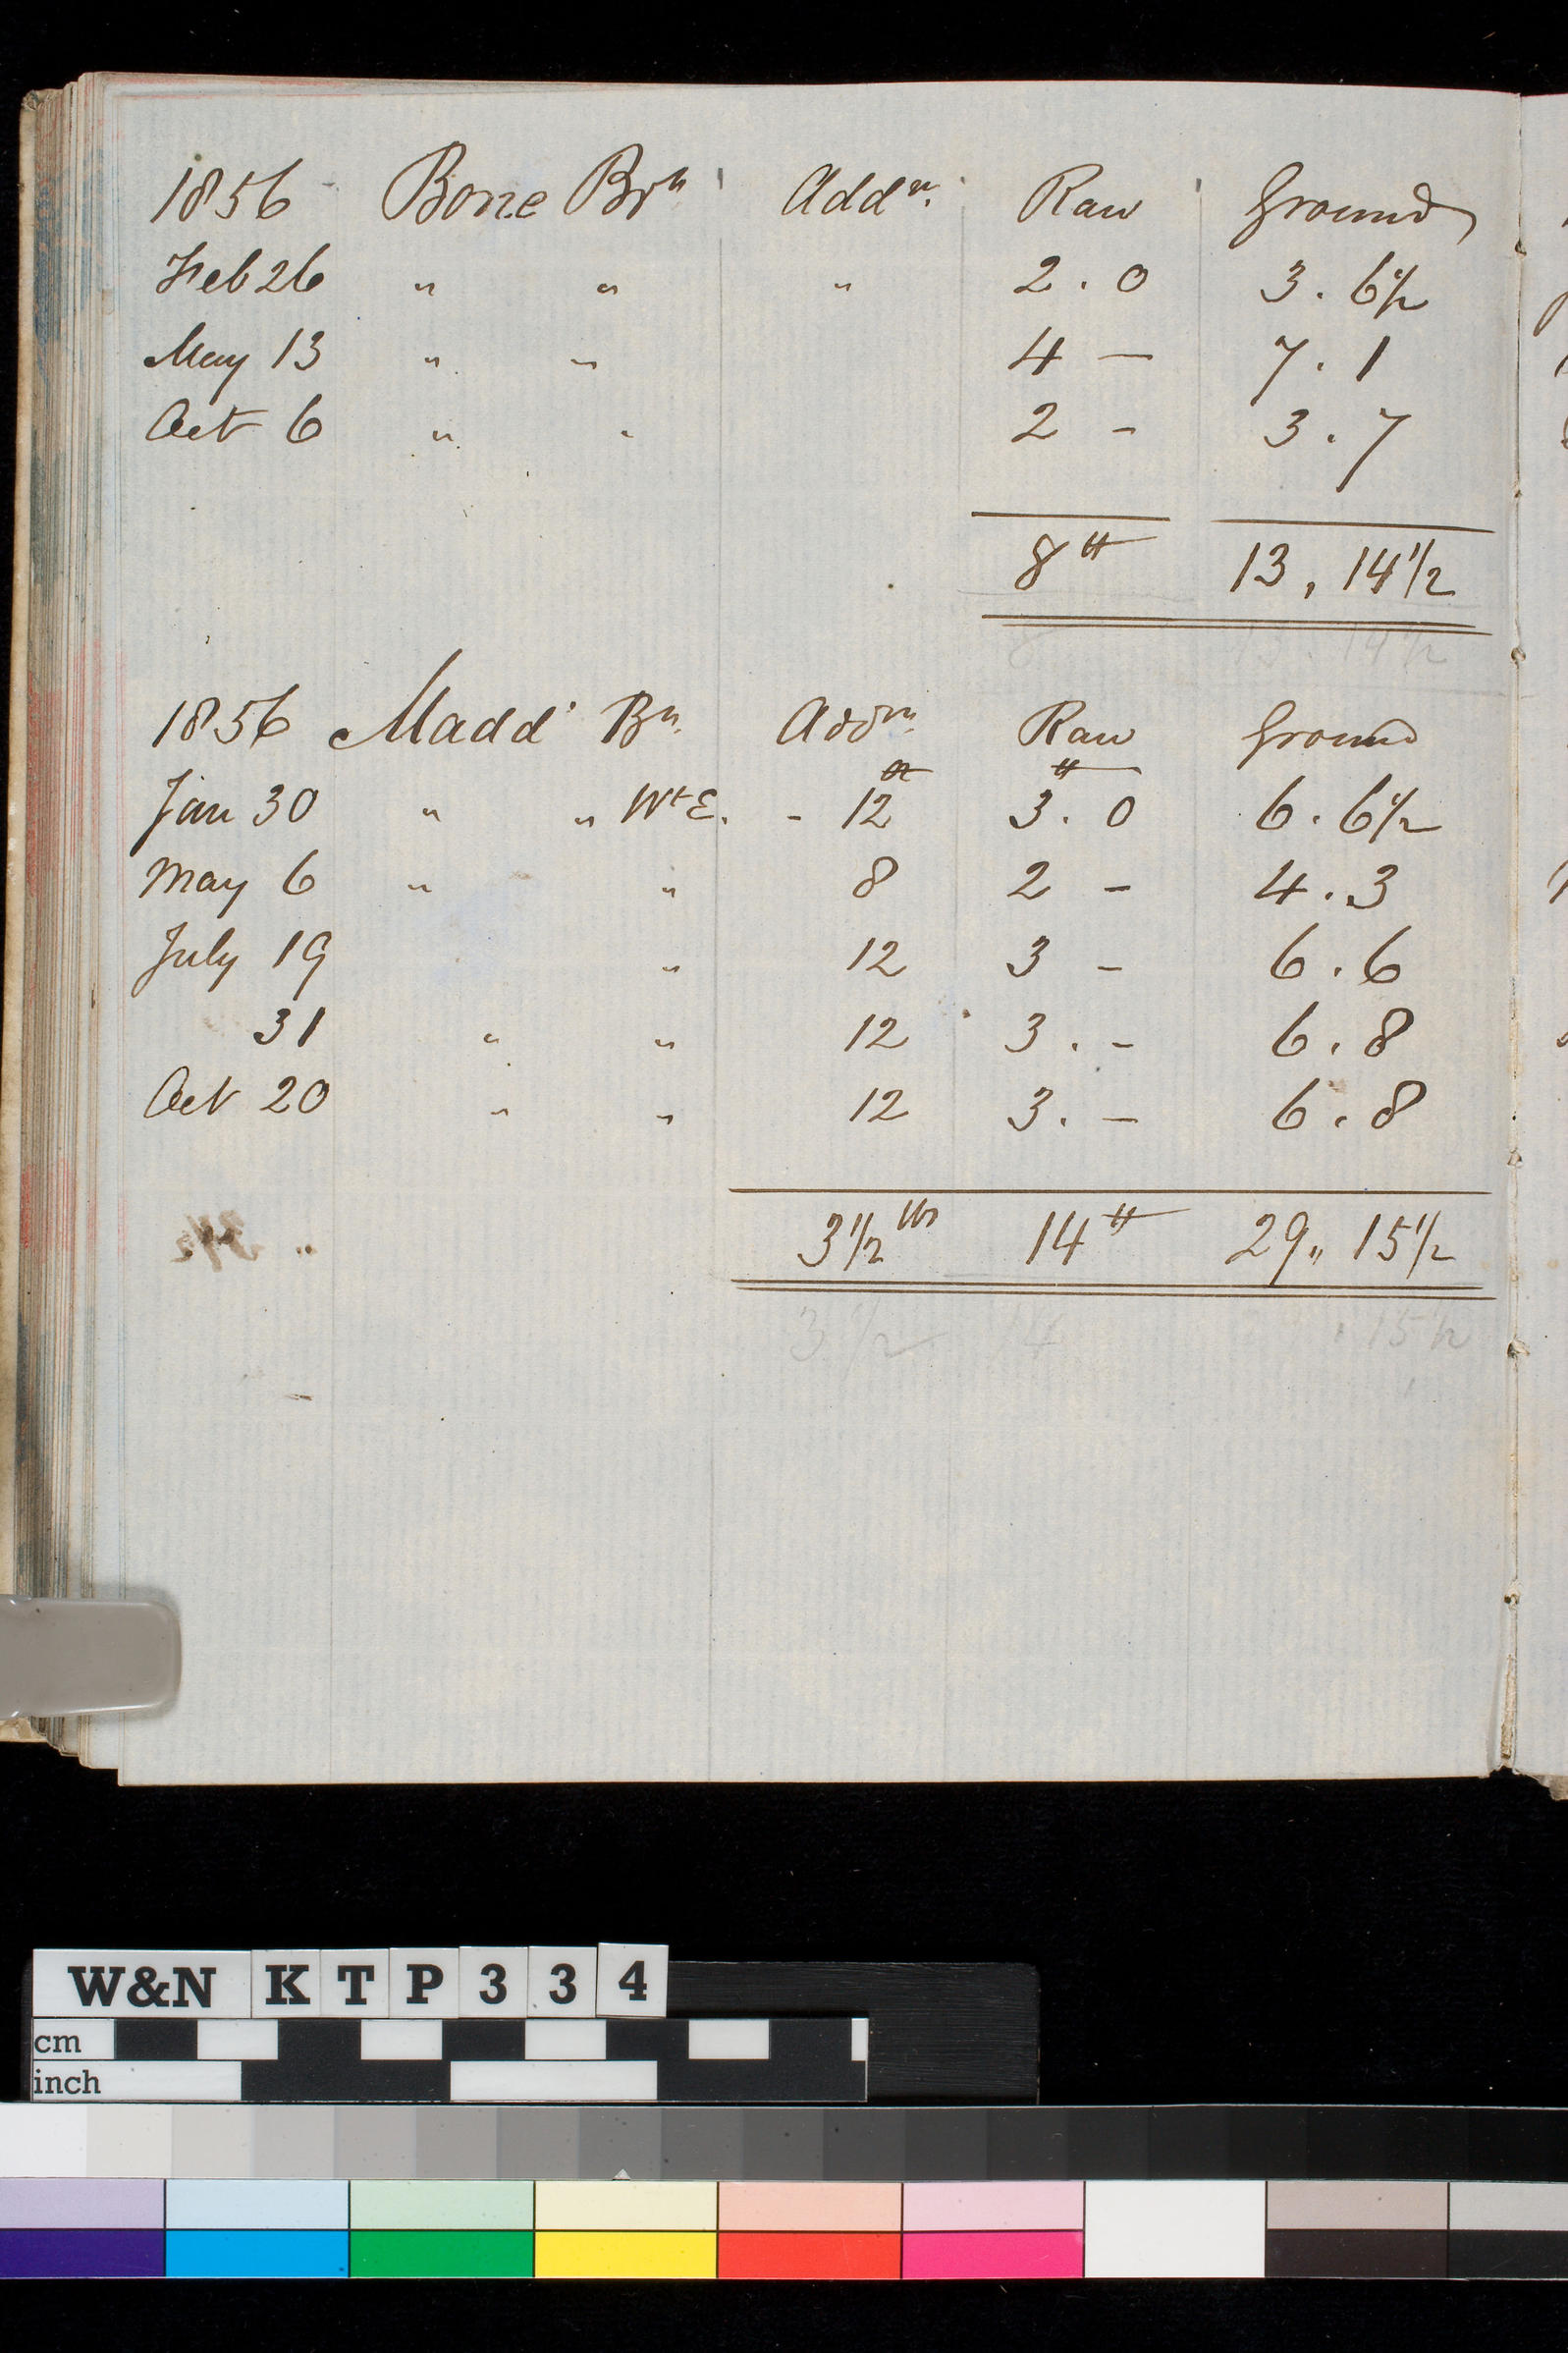 1856 Bone Brn Addn. Raw Ground
Feb 26 " " " 2 . 0 3 . 6 1/2
May 13 " " 4 — 7 . 1
Oct 6 " " 2 - 3 . 7
8 lb 13 , 14 1/2
8 13 . 14 1/2
1856 Madd' Bn. Addn. Raw Ground
oz lb
Jan 30 " " Wt E. - 12 3 . 0 6 . 6 1/2
May 6 " " 8 2 - 4 . 3
July 19 " 12 3 - 6 . 6
31 " " 12 3 . - 6 . 8
Oct 20 " " 12 3 . — 6 . 8
3 1/2 lbs 14 lb 29 " 15 1/2
3 1/2 14 . 15 1/2
W&N KTP334
cm
inch